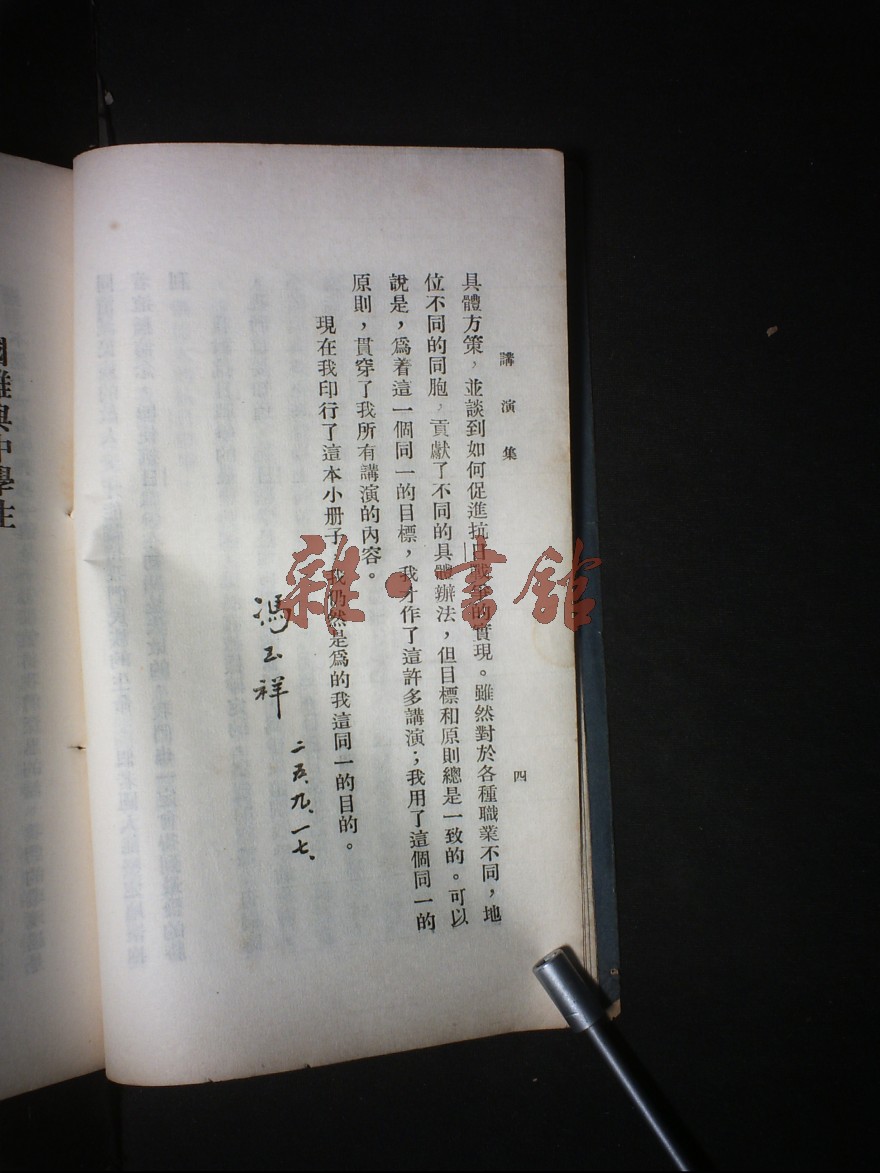 講演集
四
具體方策，並談到如何促進抗日戰爭的實現。雖然對於各種職業不同，地
位不同的同胞，貢獻了不同的具體辦法，但目標和原則總是一致的。可以
說是，爲着這一個同一的目標，我才作了這許多講演；我用了這個同一的
原則，貫穿了我所有講演的內容。
現在我印行了這本小册子，我仍然是爲的我這同一的目的。
馮玉祥
二五、九、一七、
國難與中學生
雜·書館